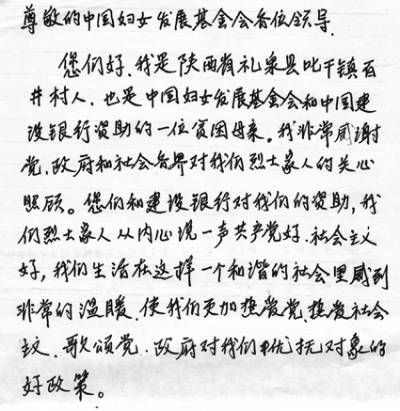 尊敬的中国妇女发展基金会各位领导.
您们好.我是陕西省礼泉县叱干镇石
井村人.也是中国妇女发展基金会和中国建
设银行资助的一位贫困母亲。我非常感谢
党.政府和社会各界对我们烈士家人的关心
照顾。您们和建设银行对我们的资助,我
们烈士家人从内心说一声共产党好.社会主义
好,我们生活在这样一个和谐的社会里感到
非常的温暖.使我们更加热爱党.热爱社会
主义.歌颂党.政府对我们优抚对象的
好政策。